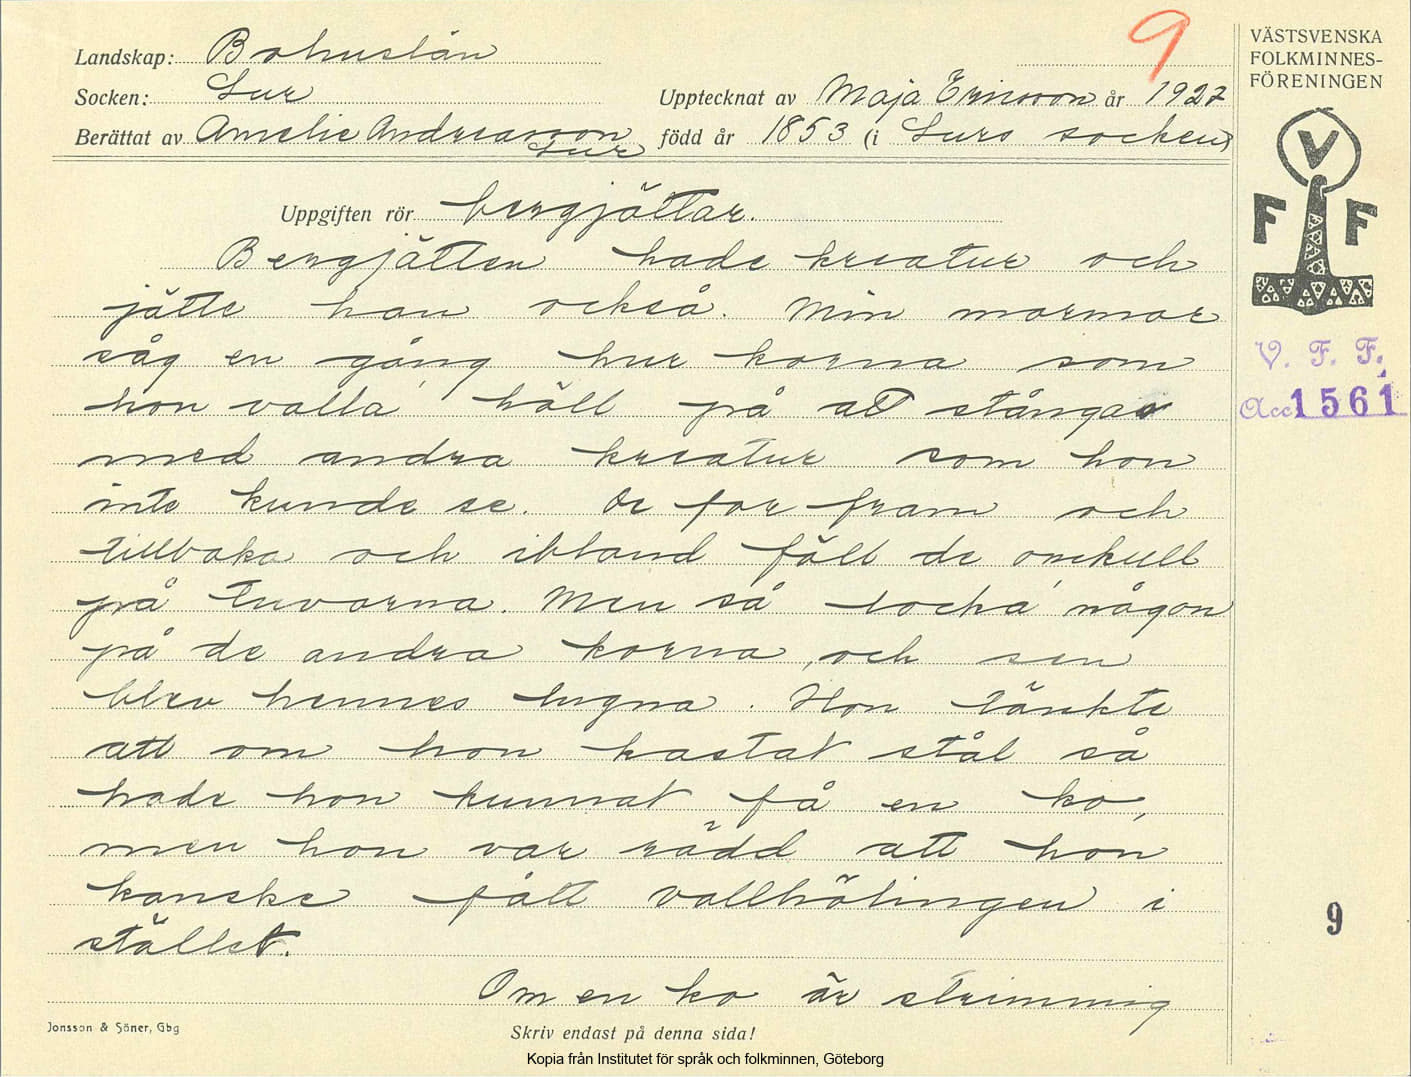 9
VÄSTSVENSKA
FOLKMINNES-
FÖRENINGEN
Landskap: Bohuslän
Socken: Lur
Upptecknat av Maja Ericsson år 1927
Berättat av Amelie Andreasson Lur född år 1853 (i Lurs socken)
V
F F
Uppgiften rör bergjättar.
Bergjätten hade kreatur och
jätte han också. Min mormor
såg en gång hur korna som
hon valla' höll på att stångas
med andra kreatur som hon
inte kunde se. De for fram och
tillbaka och ibland föll de omkull
på tuvorna. Men så locka' någon
på de andra korna, och sen
blev hennes lugna. Hon tänkte
att om hon kastat stål så
hade hon kunnat få en ko,
men hon var rädd att hon
kanske fått vallhölingen i
stället.
Om en ko är strimmig
V. F. F.
Acc 1561
9
Jonsson & Söner, Gbg
Skriv endast på denna sida!
Kopia från Institutet för språk och folkminnen, Göteborg